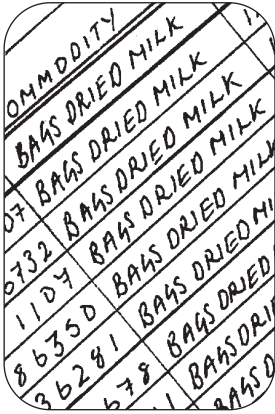 OMMODITY
BAGS DRIED MILK
07 BAGS DRIED MILK
6732 BAGS DRIED MILK
1107 BAGS DRIED MILK
86350 BAGS DRIED MILK
36281 BAGS DRIED MI
678 BAGS DRIED
BAGS DRI
BAGS D